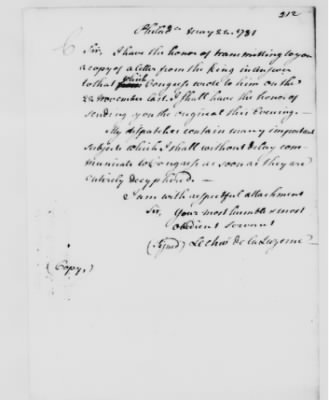 212
Philad.ª May 22. 1781
Sir, I have the honor of transmitting to you
a copy of a letter from the King in answer
to that which Congress wrote to him on the
22 November last. I shall have the honor of
sending you the original this Evening. —
My dispatches contain many important
subjects which I shall without delay com-
municate to Congress as soon as they are
entirely decyphered. —
I am with respectful attachment
Sir, Your most humble & most
obedient servant
(Signd) Le che.r de la Luzerne
(Copy.)